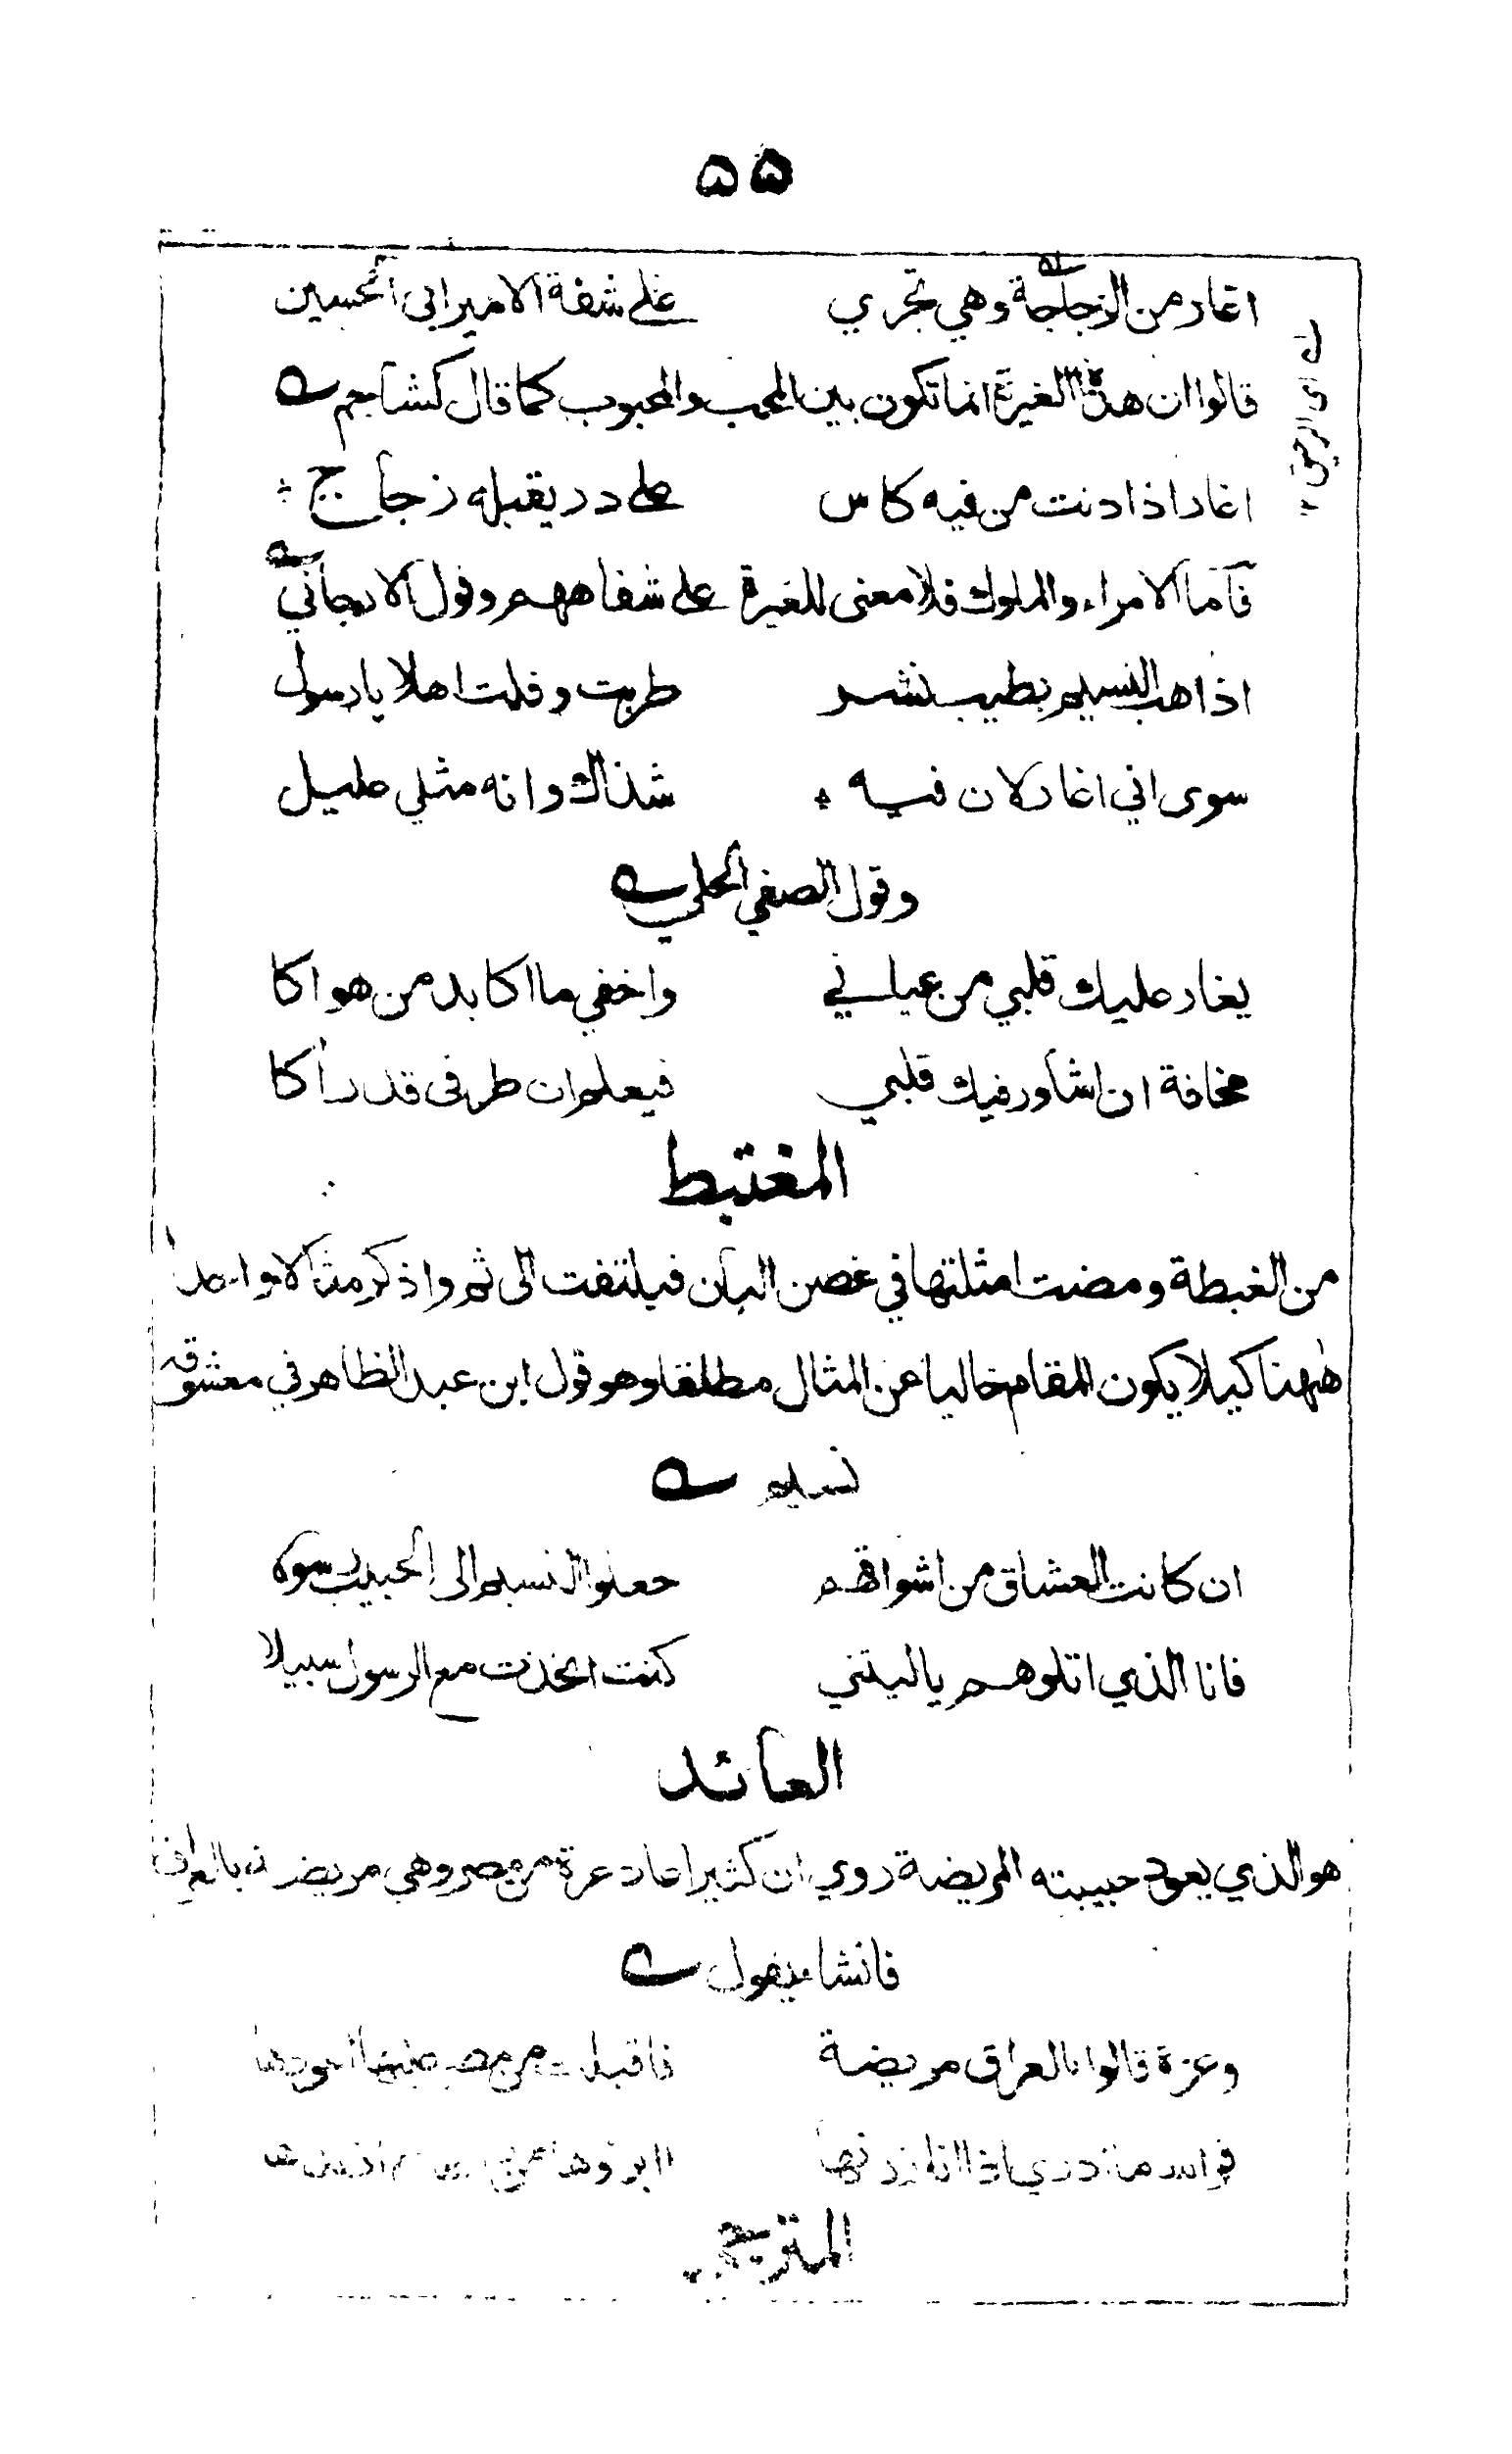 ۵۵
اغار من الزجاجة وهي تجري على شفة الامير ابي الحسين
قالوا ان هذه الغيرة انما تكون بين المحب والمحبوب كما قال كشاجم ؎
اغار اذا دنت من فيه كاس على در يقبله زجاج
فاما الامراء والملوك فلا معنى للغيرة على شفاههم وقول الارجاني ؎
اذا هب النسيم بطيب نشر طربت وقلت اهلا يا رسول
سوى اني اغار لان فيه شذاك وانه مثلي عليل
وقول الصفي الحلي ؎
يغار عليك قلبي من عياني واخفي ما اكابد من هواكا
مخافة ان اشاور فيك قلبي فيعلم ان طرفي قد رأكا
المغتبط
من الغبطة ومضت امثلتها في غصن البان فيلتفت الى ثم واذكر مثالا واحدا
ههنا كيلا يكون المقام خاليا عن المثال مطلقا وهو قول ابن عبد الظاهر في معشوقه
نسيم ؎
ان كانت العشاق من اشواقهم جعلوا النسيم الى الحبيب رسولا
فانا الذي اتلوهم يا ليتني كنت اتخذت مع الرسول سبيلا
العائد
هو الذي يعود حبيبته المريضة روي ان كثيرا عاد عزة من مصر وهي مريضة بالعراق
فانشا يقول ؎
وعزة قالوا بالعراق مريضة فاقبلت من مصر اليها اعودها
فوالله ما ادري اذا انا زرتها